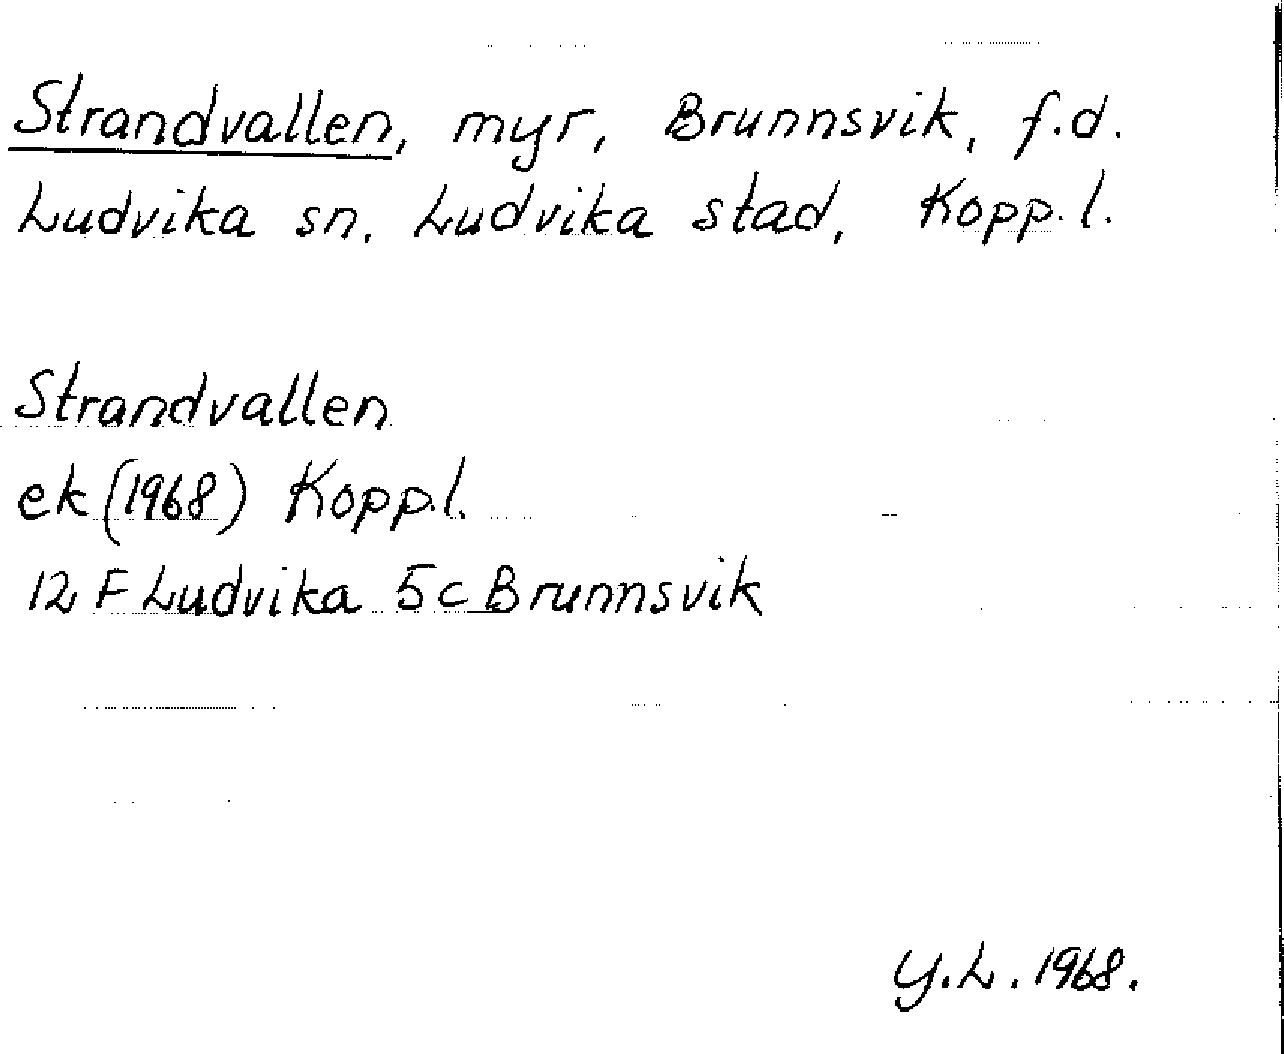 Strandvallen, myr, Brunnsvik, f.d.
Ludvika sn, Ludvika stad, Kopp.l.
Strandvallen
ek (1968) Kopp.l.
12 F Ludvika 5c Brunnsvik
Y.L. 1968.